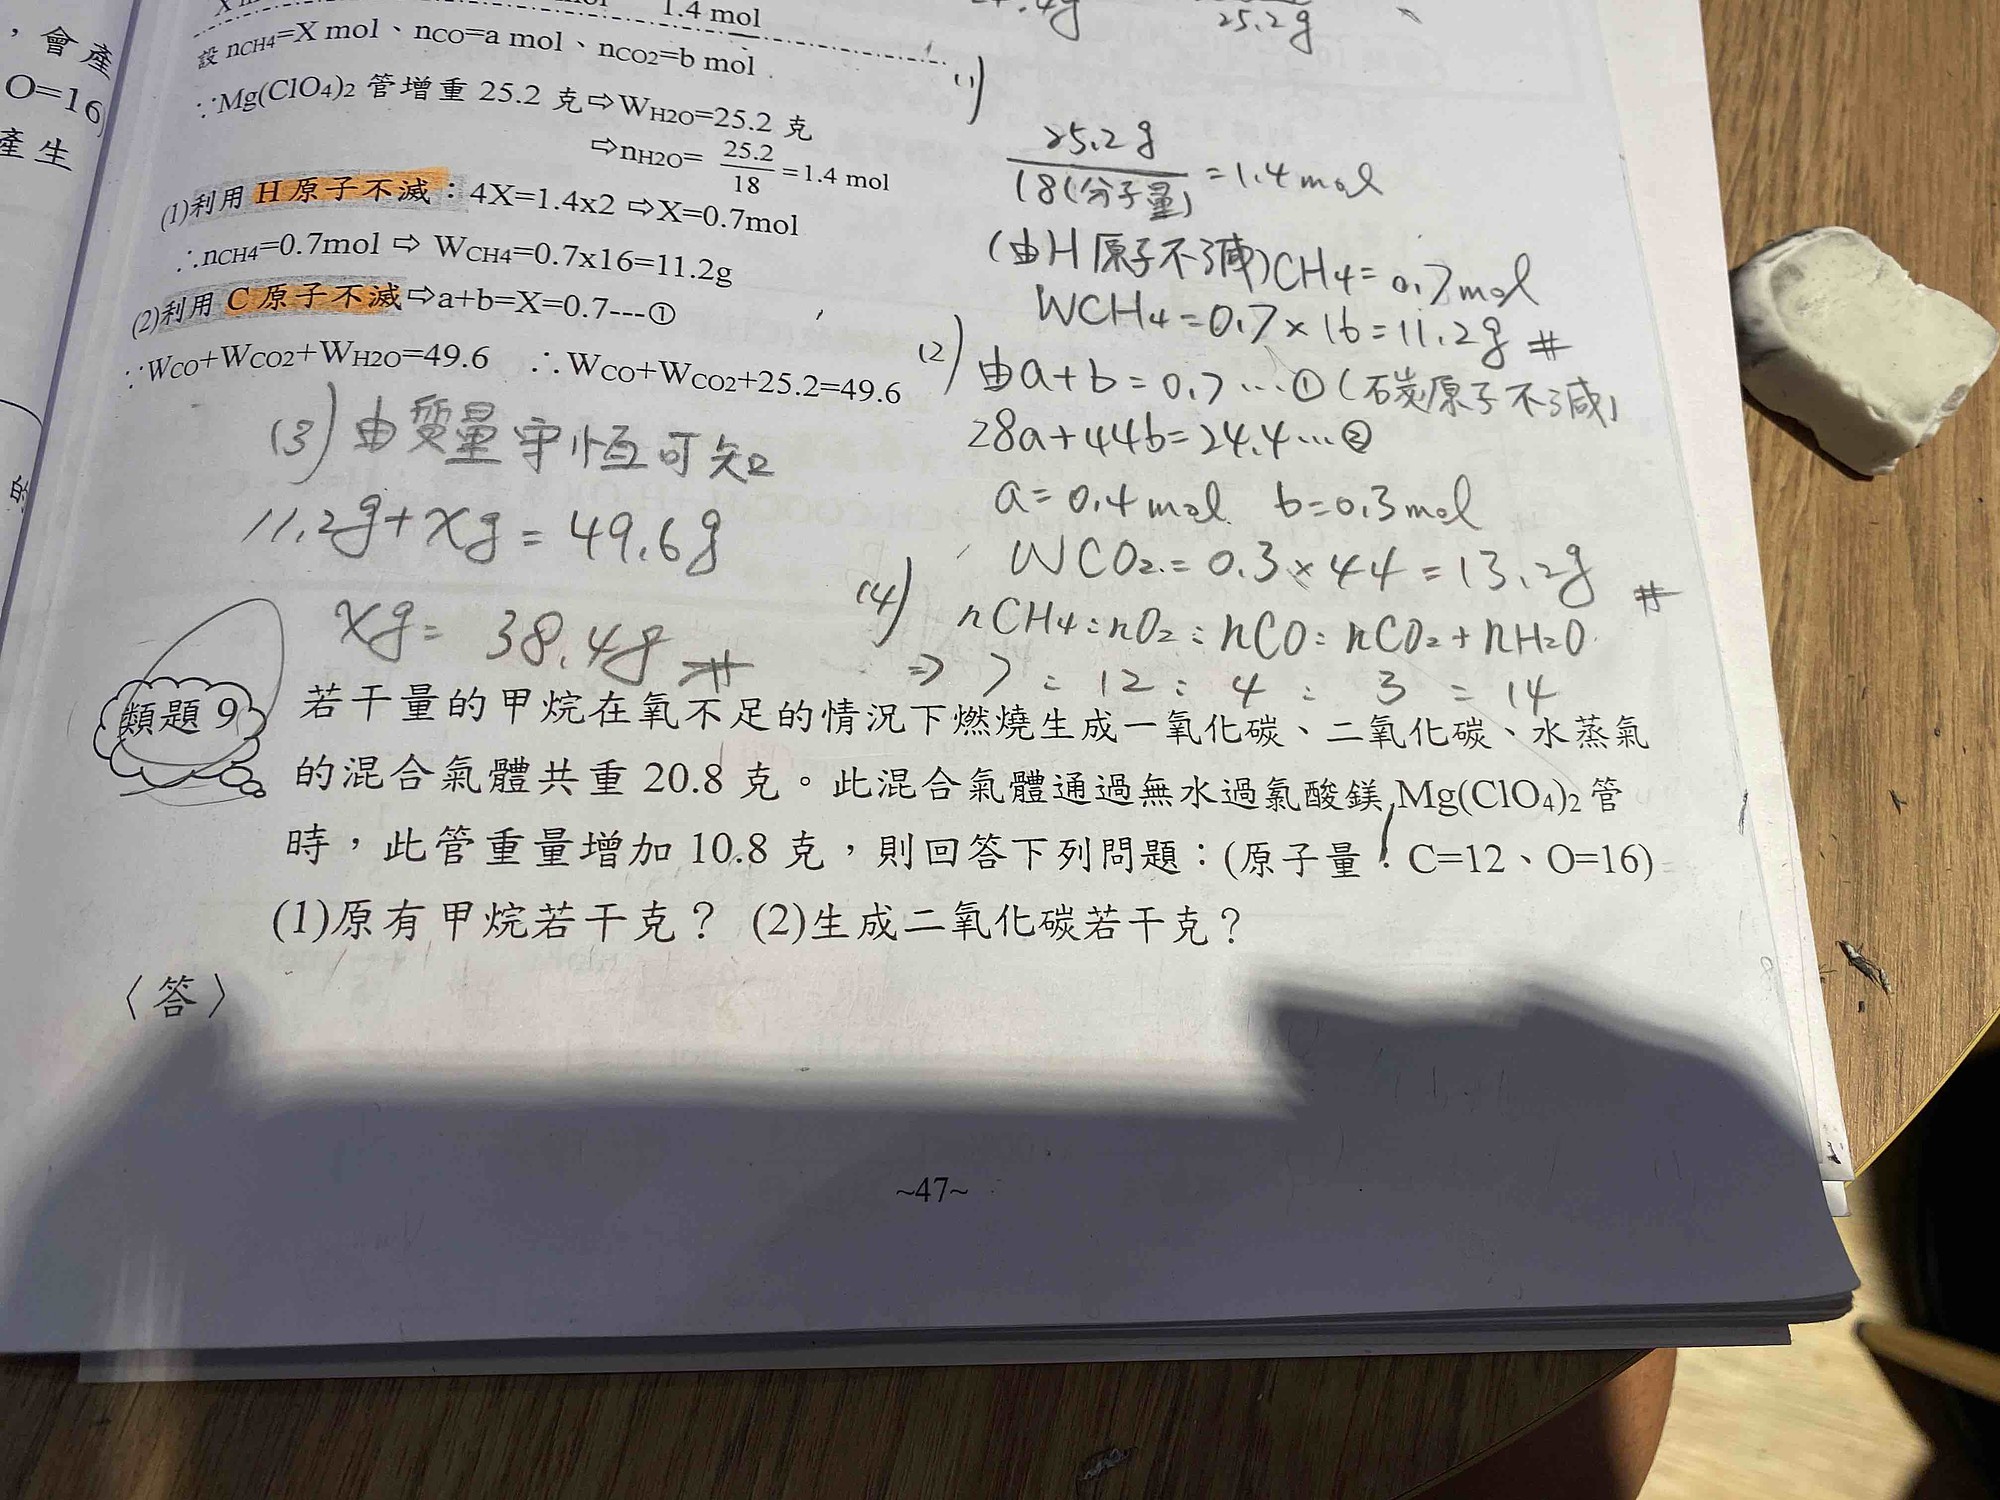 1.4 mol
設 nCH4=X mol、nCO=a mol、nCO2=b mol
∵Mg(ClO4)2 管增重 25.2 克⇨WH2O=25.2 克
⇨nH2O= 25.2/18 =1.4 mol
(1)利用 H 原子不滅：4X=1.4x2 ⇨X=0.7mol
∴nCH4=0.7mol ⇨ WCH4=0.7x16=11.2g
(2)利用 C 原子不滅⇨a+b=X=0.7---①
∵WCO+WCO2+WH2O=49.6 ∴WCO+WCO2+25.2=49.6
(3) 由質量守恆可知
11.2g+xg=49.6g
xg=38.4g #
25.2g
(1)
25.2g/18(分子量) =1.4mol
(由H原子不滅)CH4=0.7mol
WCH4=0.7×16=11.2g #
(2) 由a+b=0.7…①(碳原子不滅)
28a+44b=24.4…②
a=0.4mol b=0.3mol
WCO2=0.3×44=13.2g #
(4) nCH4:nO2:nCO:nCO2+nH2O
⇒ 7:12:4:3=14
類題 9
若干量的甲烷在氧不足的情況下燃燒生成一氧化碳、二氧化碳、水蒸氣
的混合氣體共重 20.8 克。此混合氣體通過無水過氯酸鎂 Mg(ClO4)2 管
時，此管重量增加 10.8 克，則回答下列問題：(原子量：C=12、O=16)
(1)原有甲烷若干克？ (2)生成二氧化碳若干克？
〈答〉
~47~
，會產
O=16)
產生